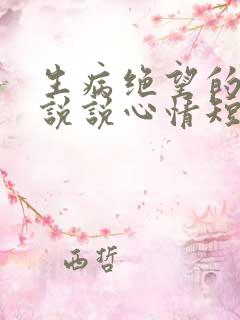 生病绝望的
说说心情短
西哲